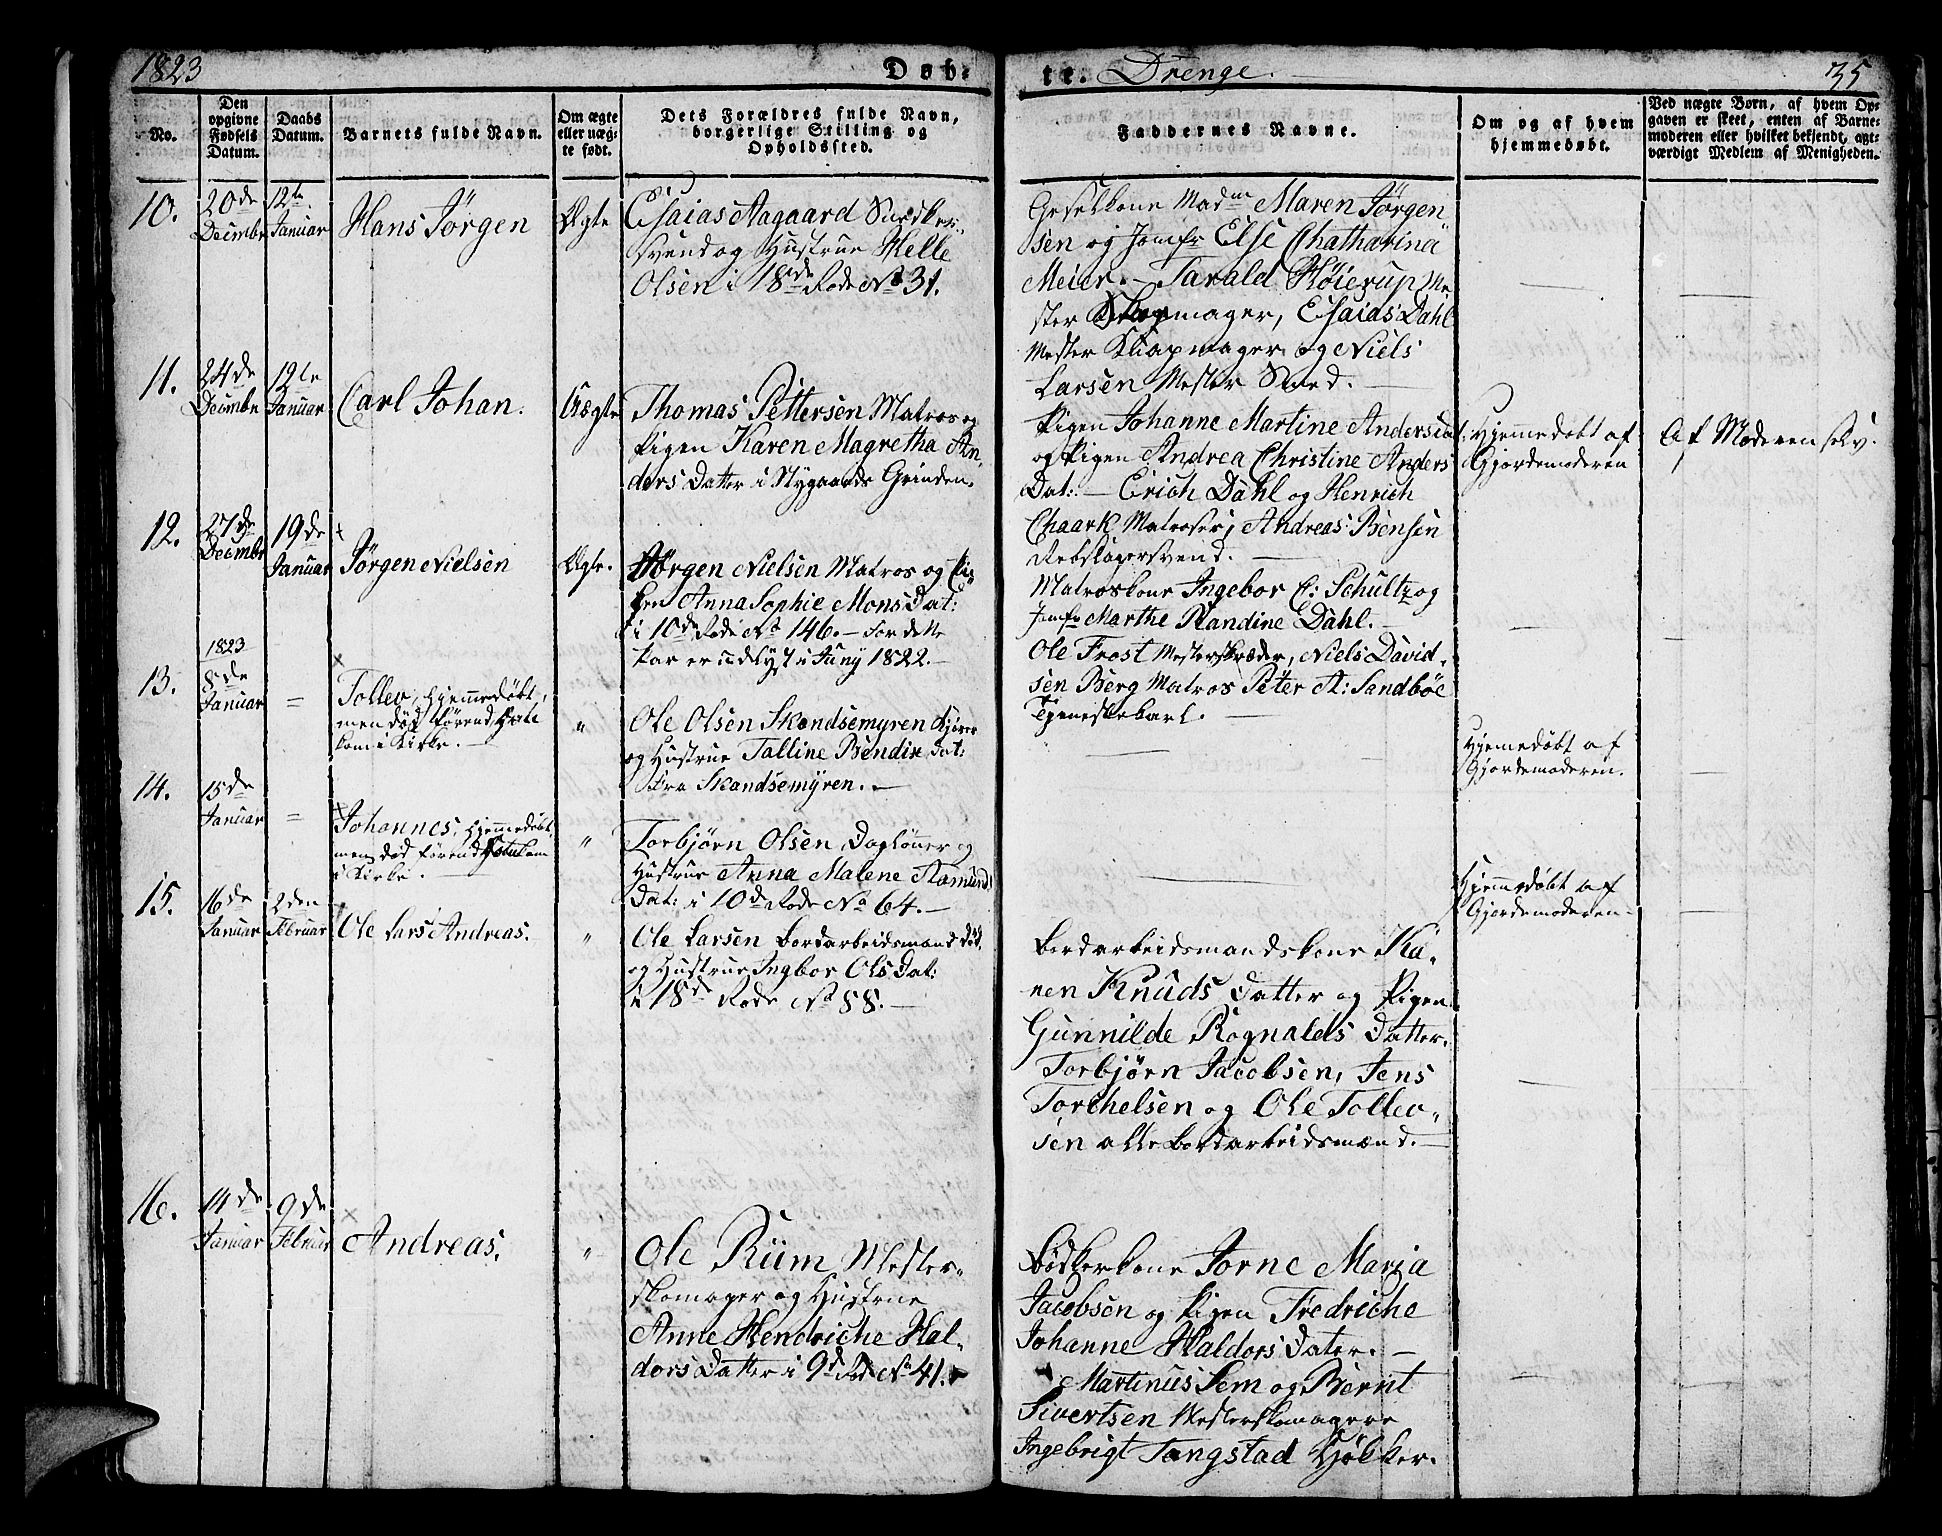 1823
Døb-
te. Drenge.
35
No.
Den
opgivne
Fødsels
Datum.
Daabs
Datum.
Barnets fulde Navn.
Om ægte
eller uæg-
te født.
Dets Forældres fulde Navn,
borgerlige Stilling og
Opholdssted.
Faddernes Navne.
Om og af hvem
hjemmedøbt.
Ved uægte Børn, af hvem Op-
gaven er skeet, enten af Barne-
moderen eller hvilket bekjendt, agt-
værdigt Medlem af Menigheden.
10.
20de
Decmbr
12te
Januar
Hans Jörgen
Ægte
Esaias Aagaard Snedker-
svend og Hustrue Helle
Olsen i 18de Rode No 31.
Geselkone Madm Maren Jörgen
sen og Jomfr Else Chatharina
Meier. - Tarald Höierup Me
ster mager, Esaias Dahl
Mester Knapmager og Niels
Larsen Mester Smed. -
11.
24de
Decmbr
12te
Januar
Carl Johan.
Uægte
Thomas Pettersen Matros og
Pigen Karen Magretha An-
ders Datter i Nygaards Grinden.
Pigen Johanne Martine Andersdat:
og Pigen Andrea Christine Anders
Dat: - Erich Dahl og Henrich
Chaark Matroser, Andreas Bensen
Rebslagersvend. -
Hjemmedøbt af
Gjordemoderen
Af Moderen selv.
12.
27de
Decmbr
19de
Januar
Jörgen Nielsen
Ægte.
Jörgen Nielsen Matros og Pi-
gen Anna Sophie Mons Dat:
i 10de Rode No 146. - For dette
Par er udlyst i Juny 1822. -
Matroskone Ingebor C: Schultz og
Jomfr Marthe Randine Dahl. -
Ole Frost Mesterskræder, Niels David-
sen Berg Matros Peter A: Sandböe
Tjenestekarl. -
1823
13.
8de
Januar
=
Tollev, hjemmedøbt,
men død förend
kom i Kirke. -
"
Ole Olsen Skandsemyren Kjører
og Hustrue Talline Bendix Dat:
fra Skandsemyren. -
Hjemmedøbt af
Gjordemoderen.
14.
15de
Januar
=
Johannes, hjemmedøbt,
men død förend kom
i Kirke. -
"
Torbjörn Olsen Daglönner og
Hustrue Anna Malene Aamund
Dat: i 10de Rode No 64. -
Hjemmedøbt af
Gjordemoderen -
15.
16de
Januar
2den
Februar
Ole Lars Andreas.
"
Ole Larsen Bordarbeidsmand død,
og Hustrue Ingbor Ols Dat:
i 18de Rode No 88. -
Bordarbeidsmandskone Ka-
ren Knuds Datter og Pigen
Gunnilde Rognalds Datter.
Torbjörn Jacobsen, Jens
Torchelsen og Ole Tollev-
sen alle Bordarbeidsmænd. -
16.
14de
Januar
9de
Februar
Andreas.
"
Ole Riim Mester-
skomager og Hustrue
Anne Hendriche Hal-
dors Datter i 9de Rode No 41.
Bödkerkone Jorne Maria
Jacobsen og Pigen Fredriche
Johanne Haldors Dater. -
Martinus Sem og Bernt
Sivertsen Mesterskomagere
Ingebrigt Tangstad Høkker.